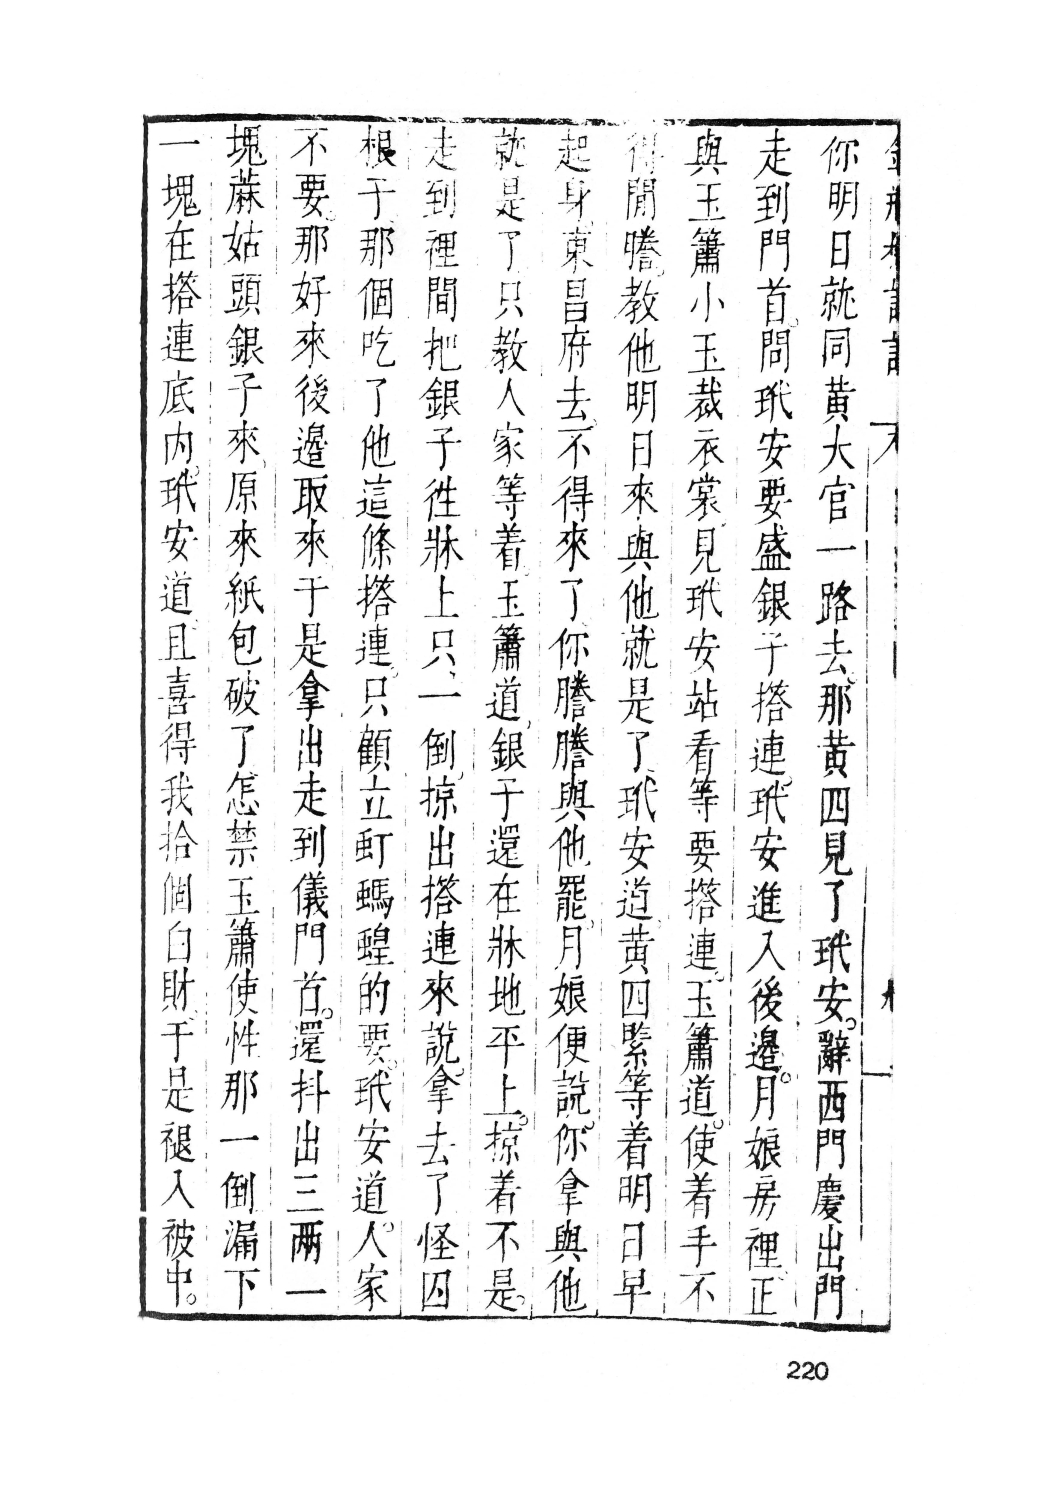 你明日就同黃大官一路去。那黃四見了玳安。辭西門慶出門
走到門首。問玳安要盛銀子搭連。玳安進入後邊。月娘房裡正
與玉簫小玉裁衣裳。見玳安站着等要搭連。玉簫道。使着手不
得閒謄。教他明日來與他就是了。玳安道。黃四緊等着明日早
起身東昌府去。不得來了。你謄謄與他罷。月娘便說。你拿與他
就是了。只教人家等着。玉簫道。銀子還在牀地平上。掠着不是。
走到裡間把銀子徃牀上只一倒。掠出搭連來說。拿去了怪囚
根子。那個吃了他這條搭連。只顧立叮螞蝗的要。玳安道。人家
不要。那好來後邊取來。于是拿出走到儀門首。還抖出三兩一
塊蔴姑頭銀子來。原來紙包破了。怎禁玉簫使性那一倒。漏下
一塊在搭連底內。玳安道。且喜得我拾個白財。于是褪入袖中。
220